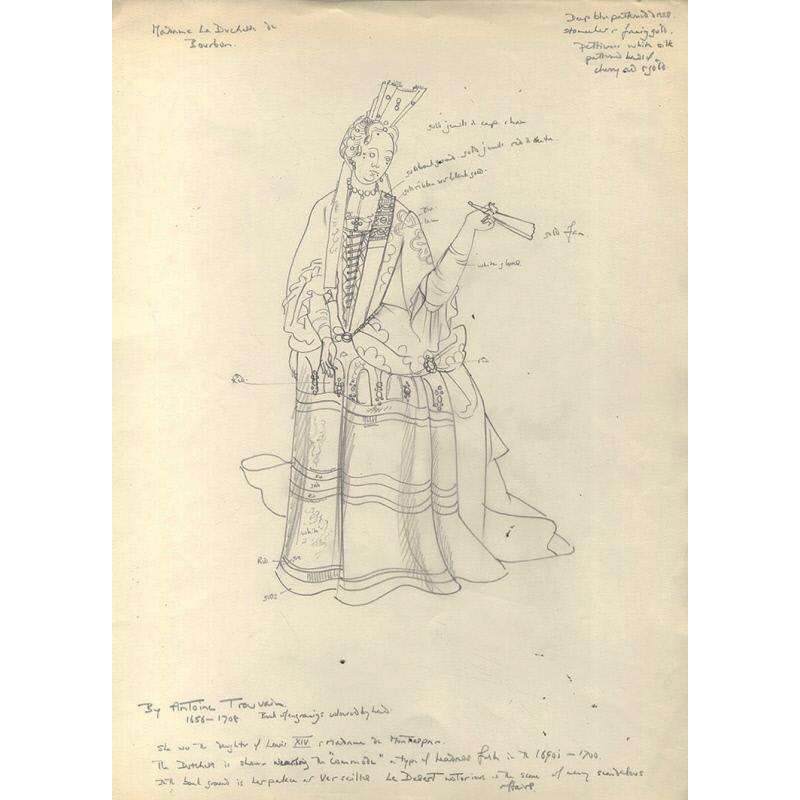 Madame La Duchess de
Bourbon.
Deep blue patterned dress.
stomacher & facing gold.
Petticoat white silk
patterned bands of
cherry red & gold.
gold jewels &
gold ground. gold jewels red &
gold ribbon over black
Blue
gold fan
white gloves.
Red.
red.
Red
gold
Red
white
Red
gold
By Antoine Trouvain
1656–1708 Book of engravings coloured by hand.
She was the daughter of Louis XIV & Madame de Montespan.
The Dutchess is shown wearing the "Commode" a type of headress fash in the 1690s – 1700.
In the back ground is her palace at Versaille Le Desert notorious as the scene of many scandalous
affairs.